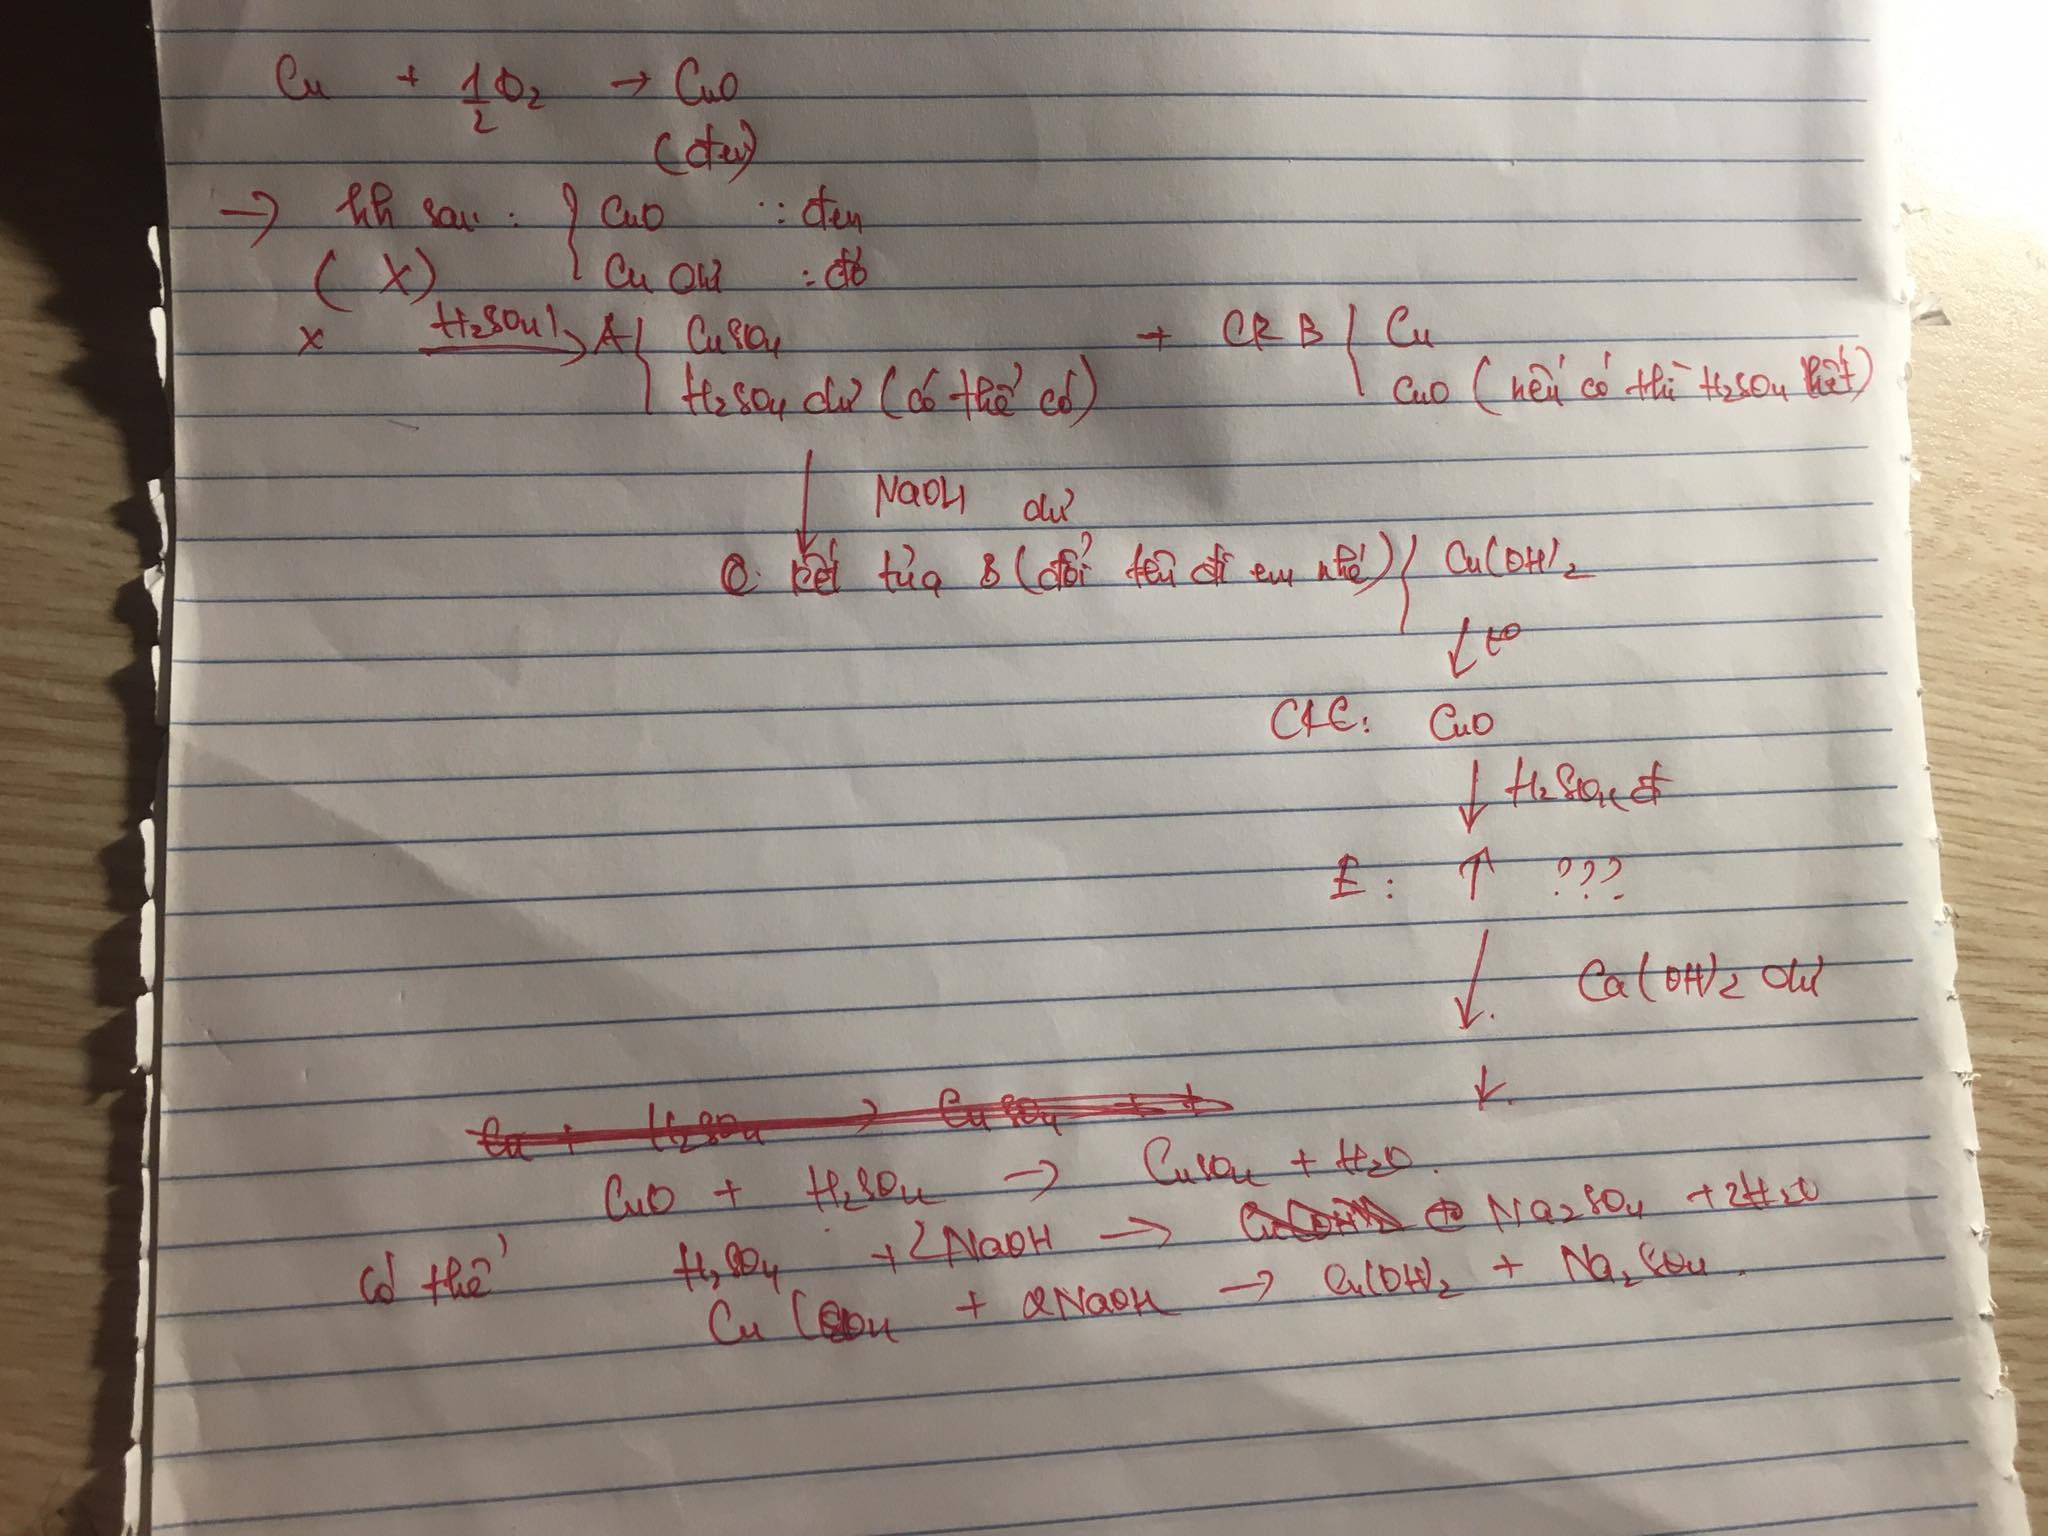 Cu + 1/2 O2 → CuO
(đen)
→ hh sau : { CuO : đen
(X) { Cu dư : đỏ
X H2SO4 l → A { CuSO4 + CR B { Cu
H2SO4 dư (có thể có) CuO (nếu có thì H2SO4 hết)
↓ NaOH dư
kết tủa B (đổi tên đi em nhé) { Cu(OH)2
↓ t°
CRC: CuO
↓ H2SO4 đ
E : ↑ ???
↓ Ca(OH)2 dư
↓.
Cu + H2SO4 → CuSO4 + +
CuO + H2SO4 → CuSO4 + H2O.
có thể H2SO4 + 2NaOH → Na2SO4 + 2H2O
CuSO4 + 2NaOH → Cu(OH)2 + Na2SO4.